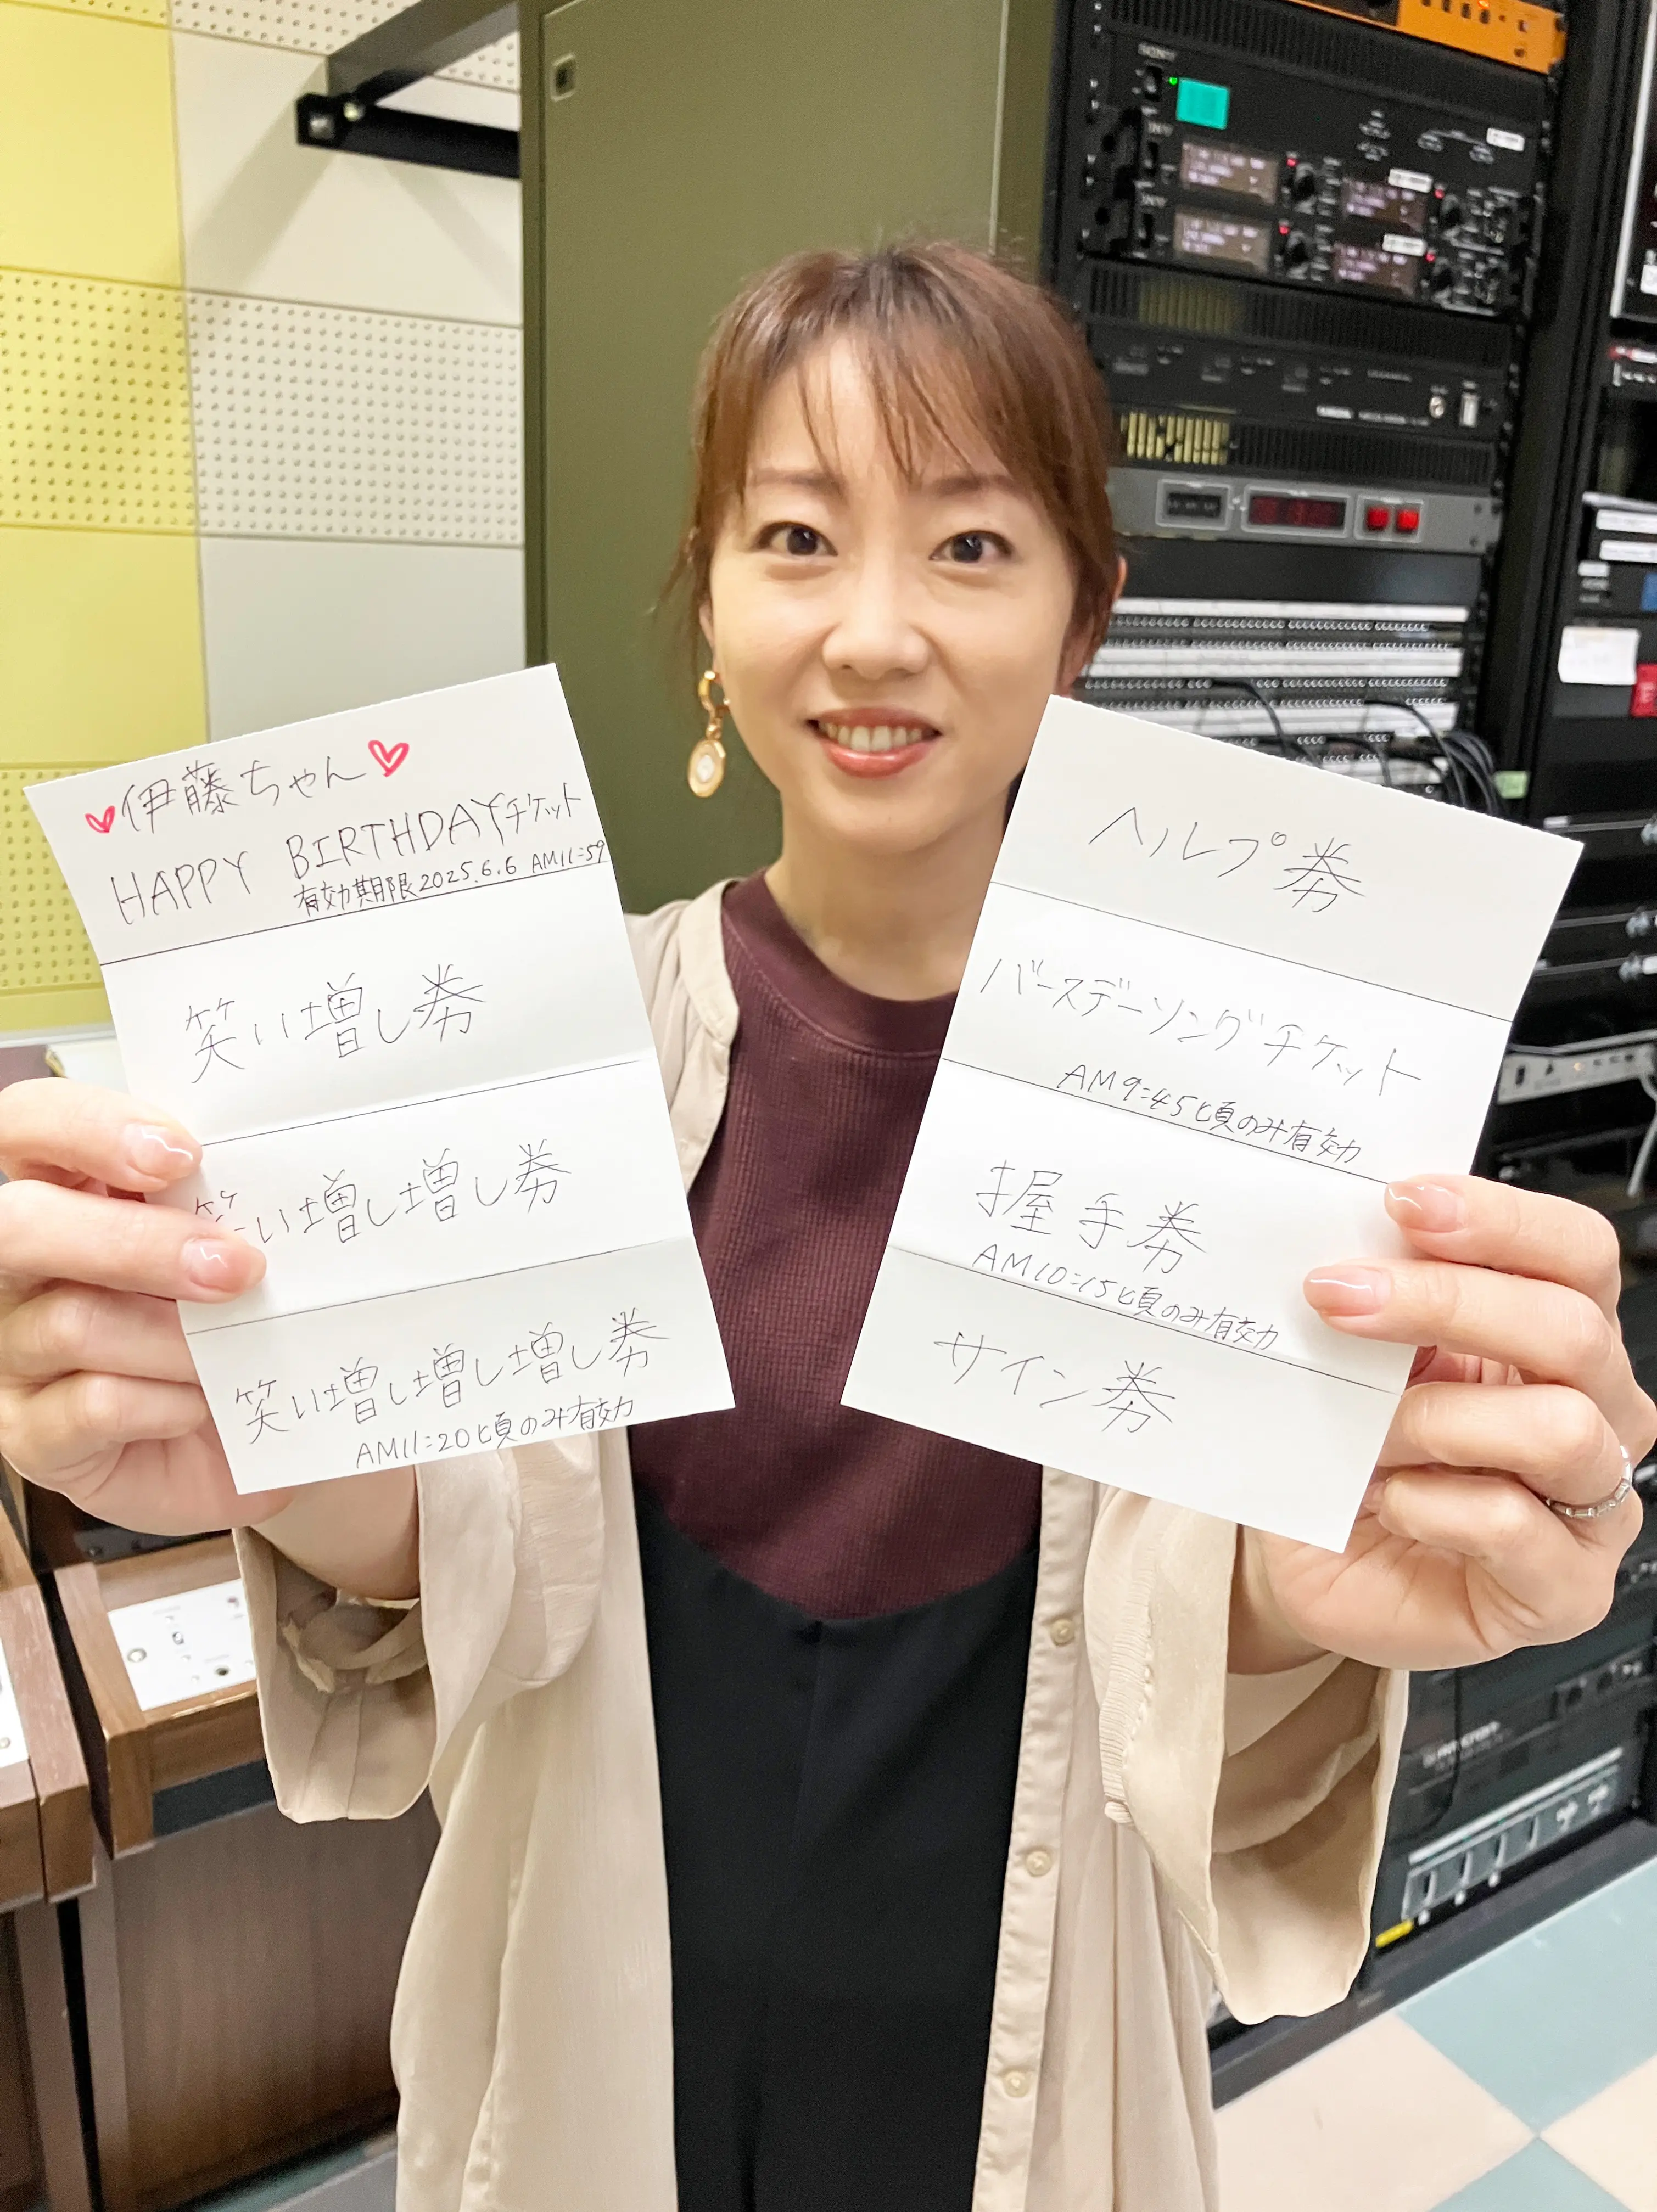 伊藤ちゃん
HAPPY BIRTHDAYチケット
有効期限2025.6.6 AM11:59
笑い増し券
笑い増し増し券
笑い増し増し増し券
AM11:20頃のみ有効
ヘルプ券
バースデーソングチケット
AM9:45頃のみ有効
握手券
AM10:15頃のみ有効
サイン券
SONY